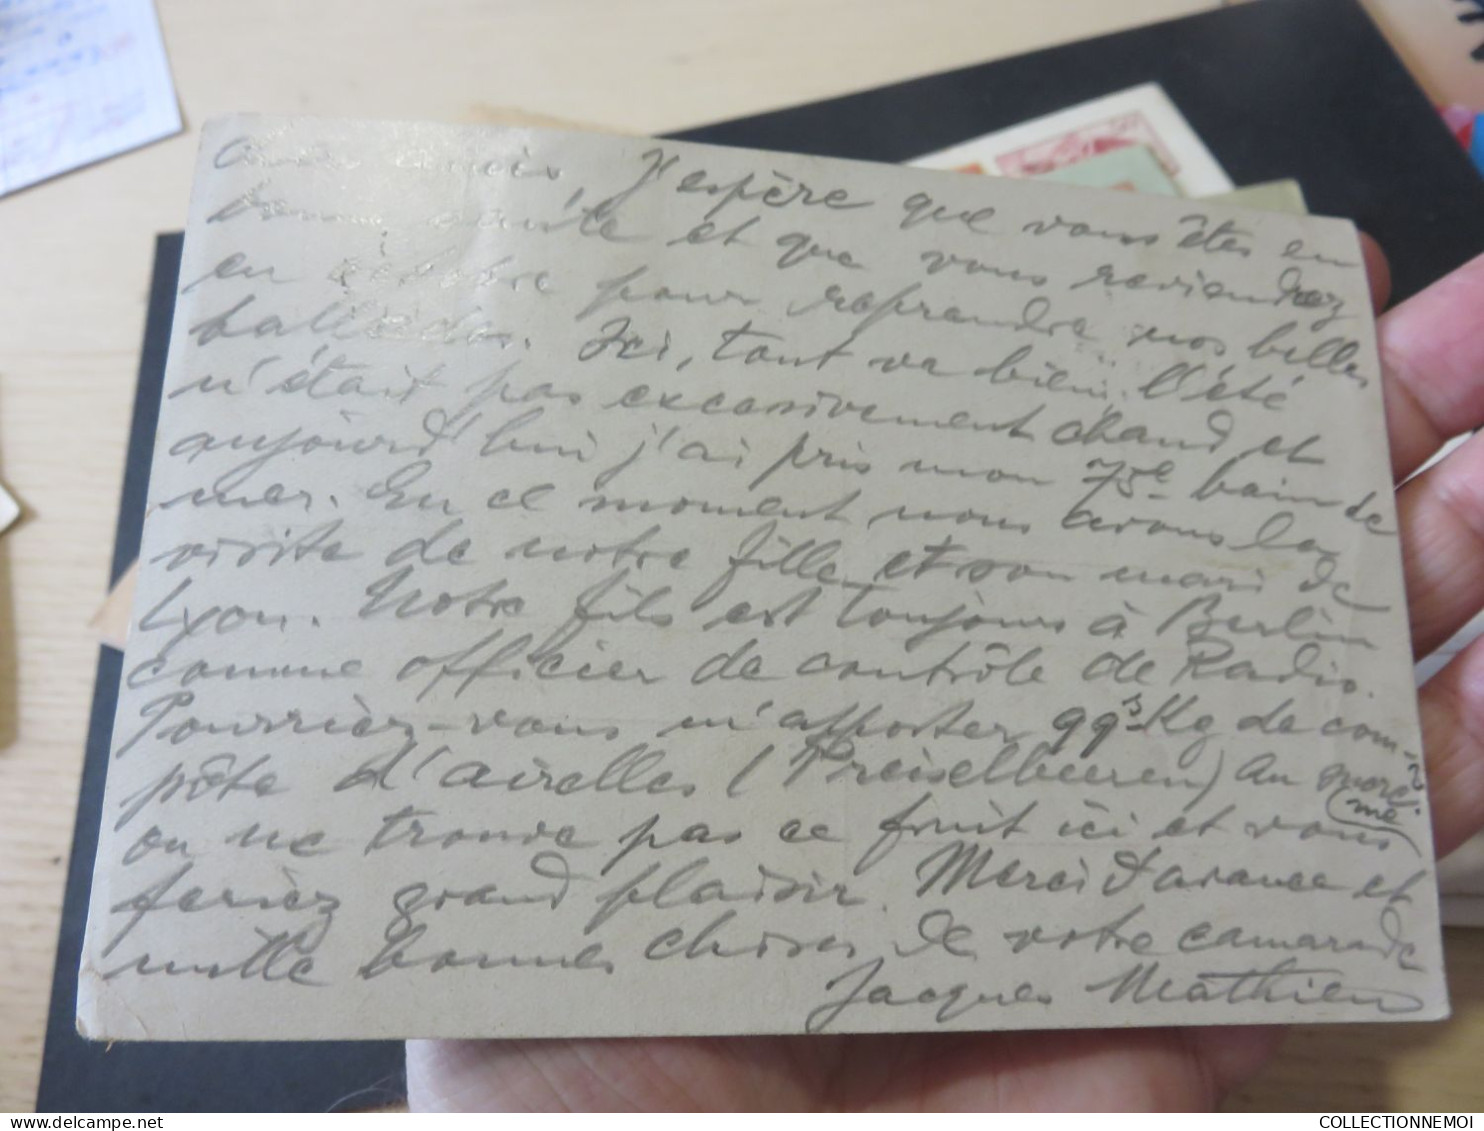 amis, J'espère que vous êtes en
bonne santé et que vous reviendrez
en octobre pour reprendre nos belles
ballades. Ici, tout va bien, l'été
n'était pas excessivement chaud et
aujourd'hui j'ai pris mon 75e bain de
mer. En ce moment nous avons la
visite de notre fille et son mari de
Lyon. Notre fils est toujours à Berlin
comme officier de contrôle de Radio.
Pourriez-vous m'apporter Kg de com-
pôte d'airelles (Preiselbeeren)
on ne trouve pas ce fruit ici et vous me
feriez grand plaisir. Merci d'avance et
mille bonnes choses de votre camarade
Jacques Mathieu
COLLECTIONNEMOI